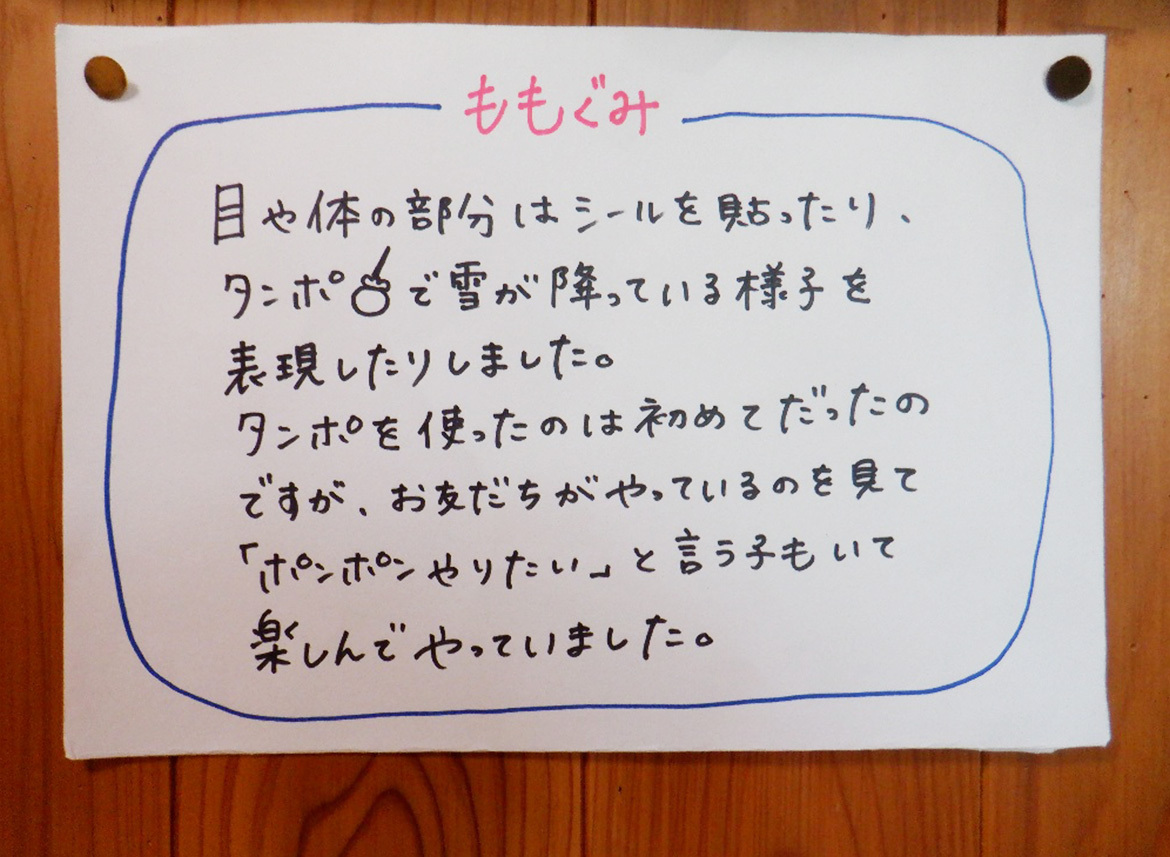 ももぐみ
目や体の部分はシールを貼ったり、
タンポで雪が降っている様子を
表現したりしました。
タンポを使ったのは初めてだったの
ですが、お友だちがやっているのを見て
「ポンポンやりたい」と言う子もいて
楽しんでやっていました。